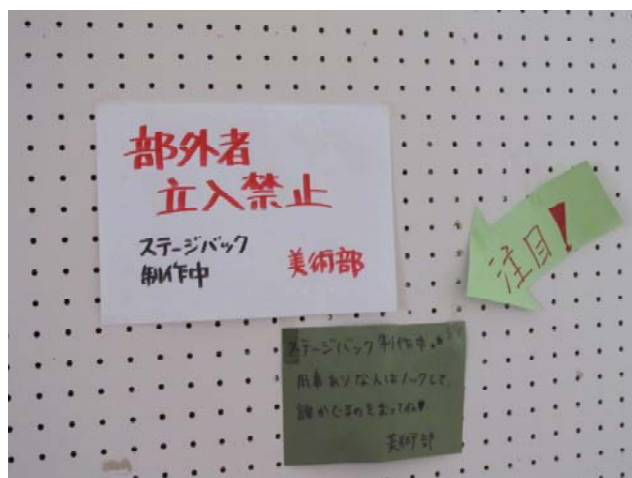 部外者
立入禁止
ステージバック
制作中
美術部
注目!
ステージバック制作中。
用事ありな人はノックして
誰かでるのをまってね♥
美術部